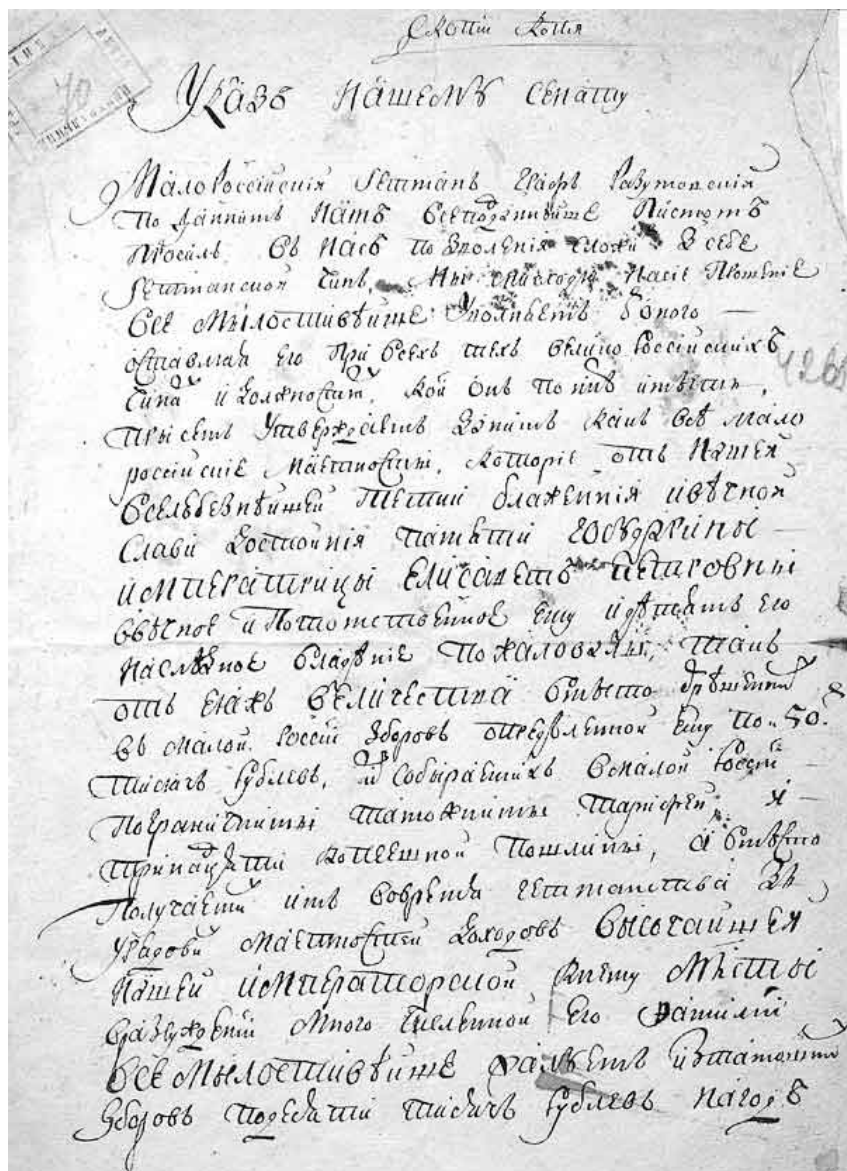 С копіи копия
Указъ нашему сенату
Малороссійскія гетманъ графъ Разумовскія
по даннимъ намъ всеподданнѣйше писмомъ
просилъ въ насъ позволенія сложи з себе
гетманской чинъ, мы снисходя на сіе прошеніе
всемылостивѣйше уволняемъ з оного
оставляя его при всехъ техъ велико россійскихъ
чина и должност, кои онъ по ннѣ имѣетъ,
при семъ утверждаемъ за нимъ какъ всѣ мало
россійскіе маетности, которіе отъ нашея
вселюбезнѣйшей тетки блаженнія и вѣчной
слави достойнія памяти государини
императрицы Елисаветъ Петровны
ввѣчное и потомственное ему и дѣтямъ его
наслѣдное владѣніе пожаловани, такъ
отъ ея жъ величества вмѣсто
въ малой россіи зборовъ определенной ему по 50.
тисячъ рублевъ, и собыраемихъ в малой россіи
пограничнимы таможнимы тарифеи, и
тринадцати копеешной пошлины, а вмѣсто
получаеми имъ во время гетманства з
урядови маетностей доходовъ высочайшея
нашей императорской к нему мылості
в разсужденіи много численной его фамиліи
всемылостивѣйше жалуемъ из таможни
зборовъ по десяти тисячъ рублевъ на годъ